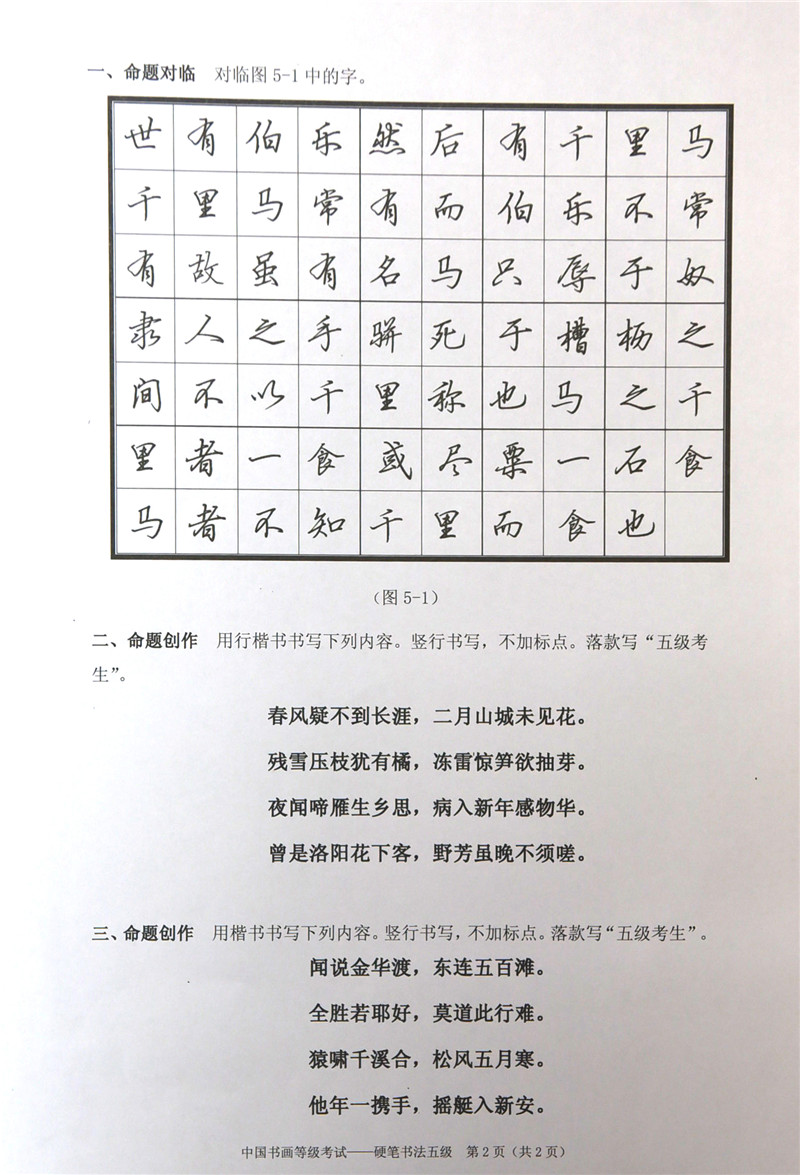 一、命题对临　对临图 5-1 中的字。
世有伯乐然后有千里马
千里马常有而伯乐不常
有故虽有名马只辱于奴
隶人之手骈死于槽枥之
间不以千里称也马之千
里者一食或尽粟一石食
马者不知千里而食也
（图 5-1）
二、命题创作　用行楷书书写下列内容。竖行书写，不加标点。落款写“五级考
生”。
春风疑不到长涯，二月山城未见花。
残雪压枝犹有橘，冻雷惊笋欲抽芽。
夜闻啼雁生乡思，病入新年感物华。
曾是洛阳花下客，野芳虽晚不须嗟。
三、命题创作　用楷书书写下列内容。竖行书写，不加标点。落款写“五级考生”。
闻说金华渡，东连五百滩。
全胜若耶好，莫道此行难。
猿啸千溪合，松风五月寒。
他年一携手，摇艇入新安。
中国书画等级考试——硬笔书法五级　第 2 页（共 2 页）